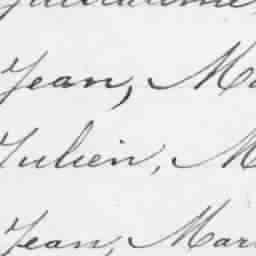 Jean, Ma
Julien, M
Jean, Mar